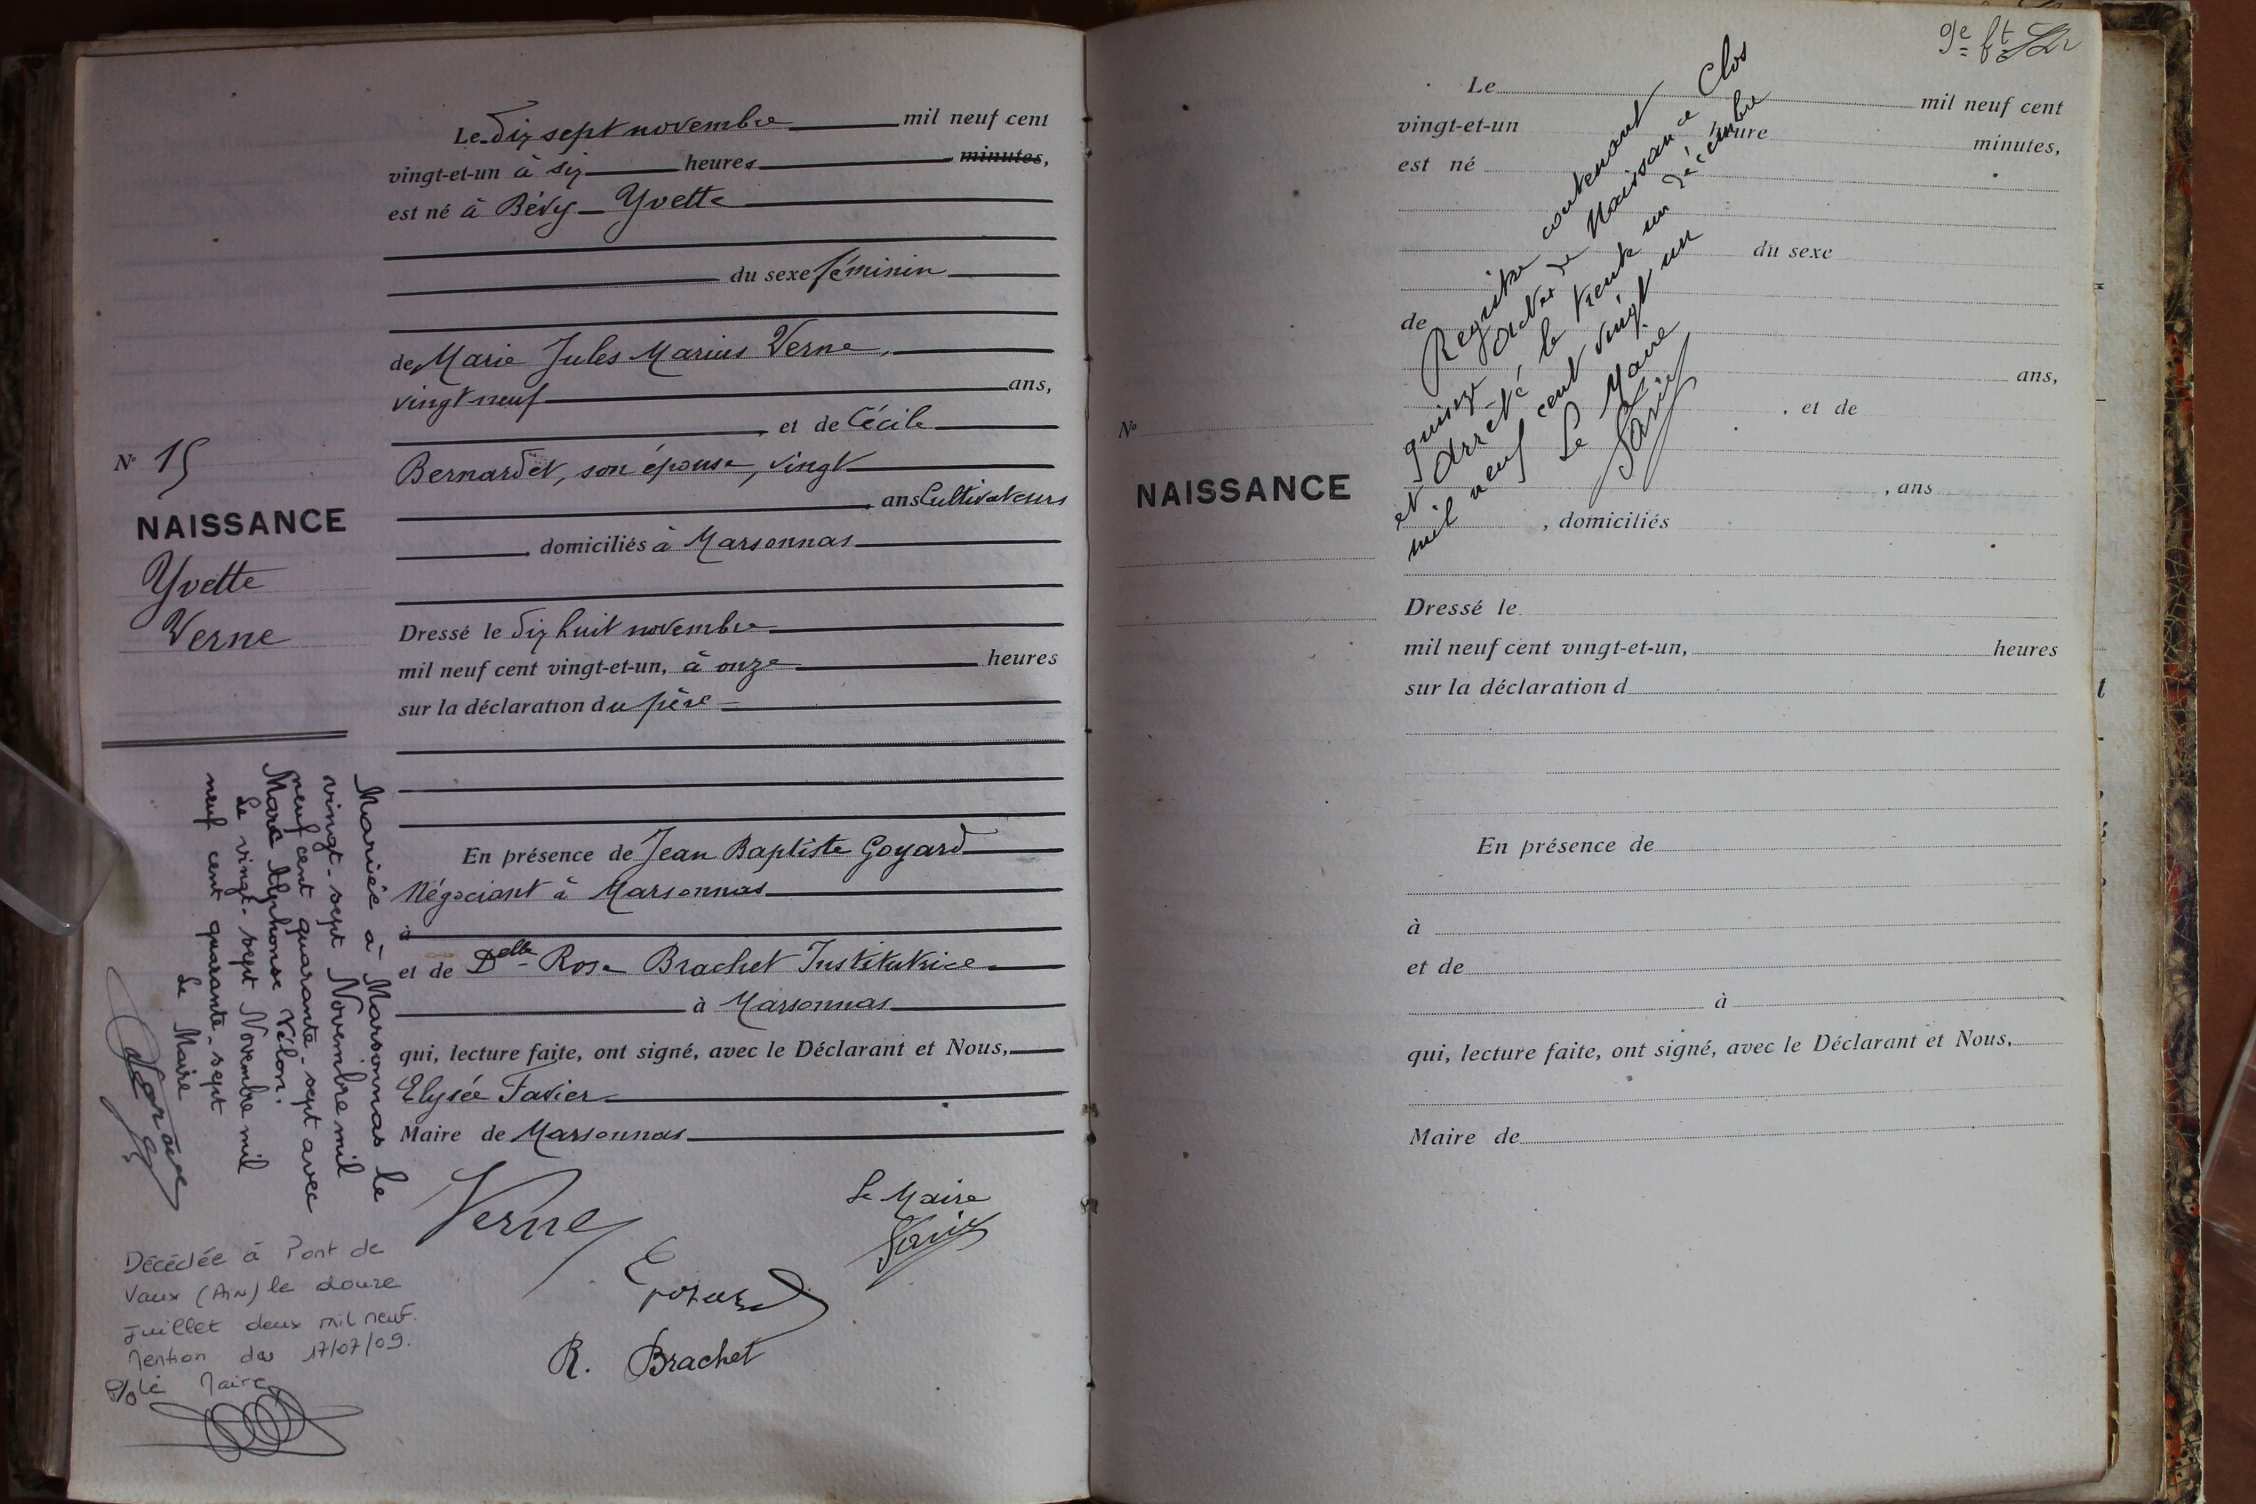 Le dix sept novembre mil neuf cent
vingt-et-un à six heures minutes,
est né à Bévy Yvette
du sexe féminin
de Marie Jules Marius Verne,
vingt neuf ans,
, et de Cécile
Bernardet, son épouse, vingt
, ans Cultivateurs
, domiciliés à Marsonnas
Dressé le dix huit novembre
mil neuf cent vingt-et-un, à onze heures
sur la déclaration du père
En présence de Jean Baptiste Goyard
Négociant à Marsonnas
à
et de Delle Rose Brachet Institutrice
à Marsonnas
qui, lecture faite, ont signé, avec le Déclarant et Nous,
Elysée Favier
Maire de Marsonnas
Verne
Le Maire
Favier
Goyard
R. Brachet
N° 15
NAISSANCE
Yvette
Verne
Mariée à Marsonnas le
vingt-sept Novembre mil
neuf cent quarante-sept avec
Marc Alphonse Vélon.
Le vingt-sept Novembre mil
neuf cent quarante-sept
Le Maire
Décédée à Pont de
Vaux (Ain) le douze
juillet deux mil neuf.
Mention du 17/07/09.
P/o Le Maire
9e ft
Le mil neuf cent
vingt-et-un heure minutes,
est né
du sexe
de
ans,
, et de
N°
NAISSANCE
, ans
, domiciliés
Registre contenant
quinze actes de Naissance Clos
et arrêté le trente un décembre
mil neuf cent vingt un
Le Maire
Favier
Dressé le
mil neuf cent vingt-et-un, heures
sur la déclaration d
En présence de
à
et de
à
qui, lecture faite, ont signé, avec le Déclarant et Nous,
Maire de